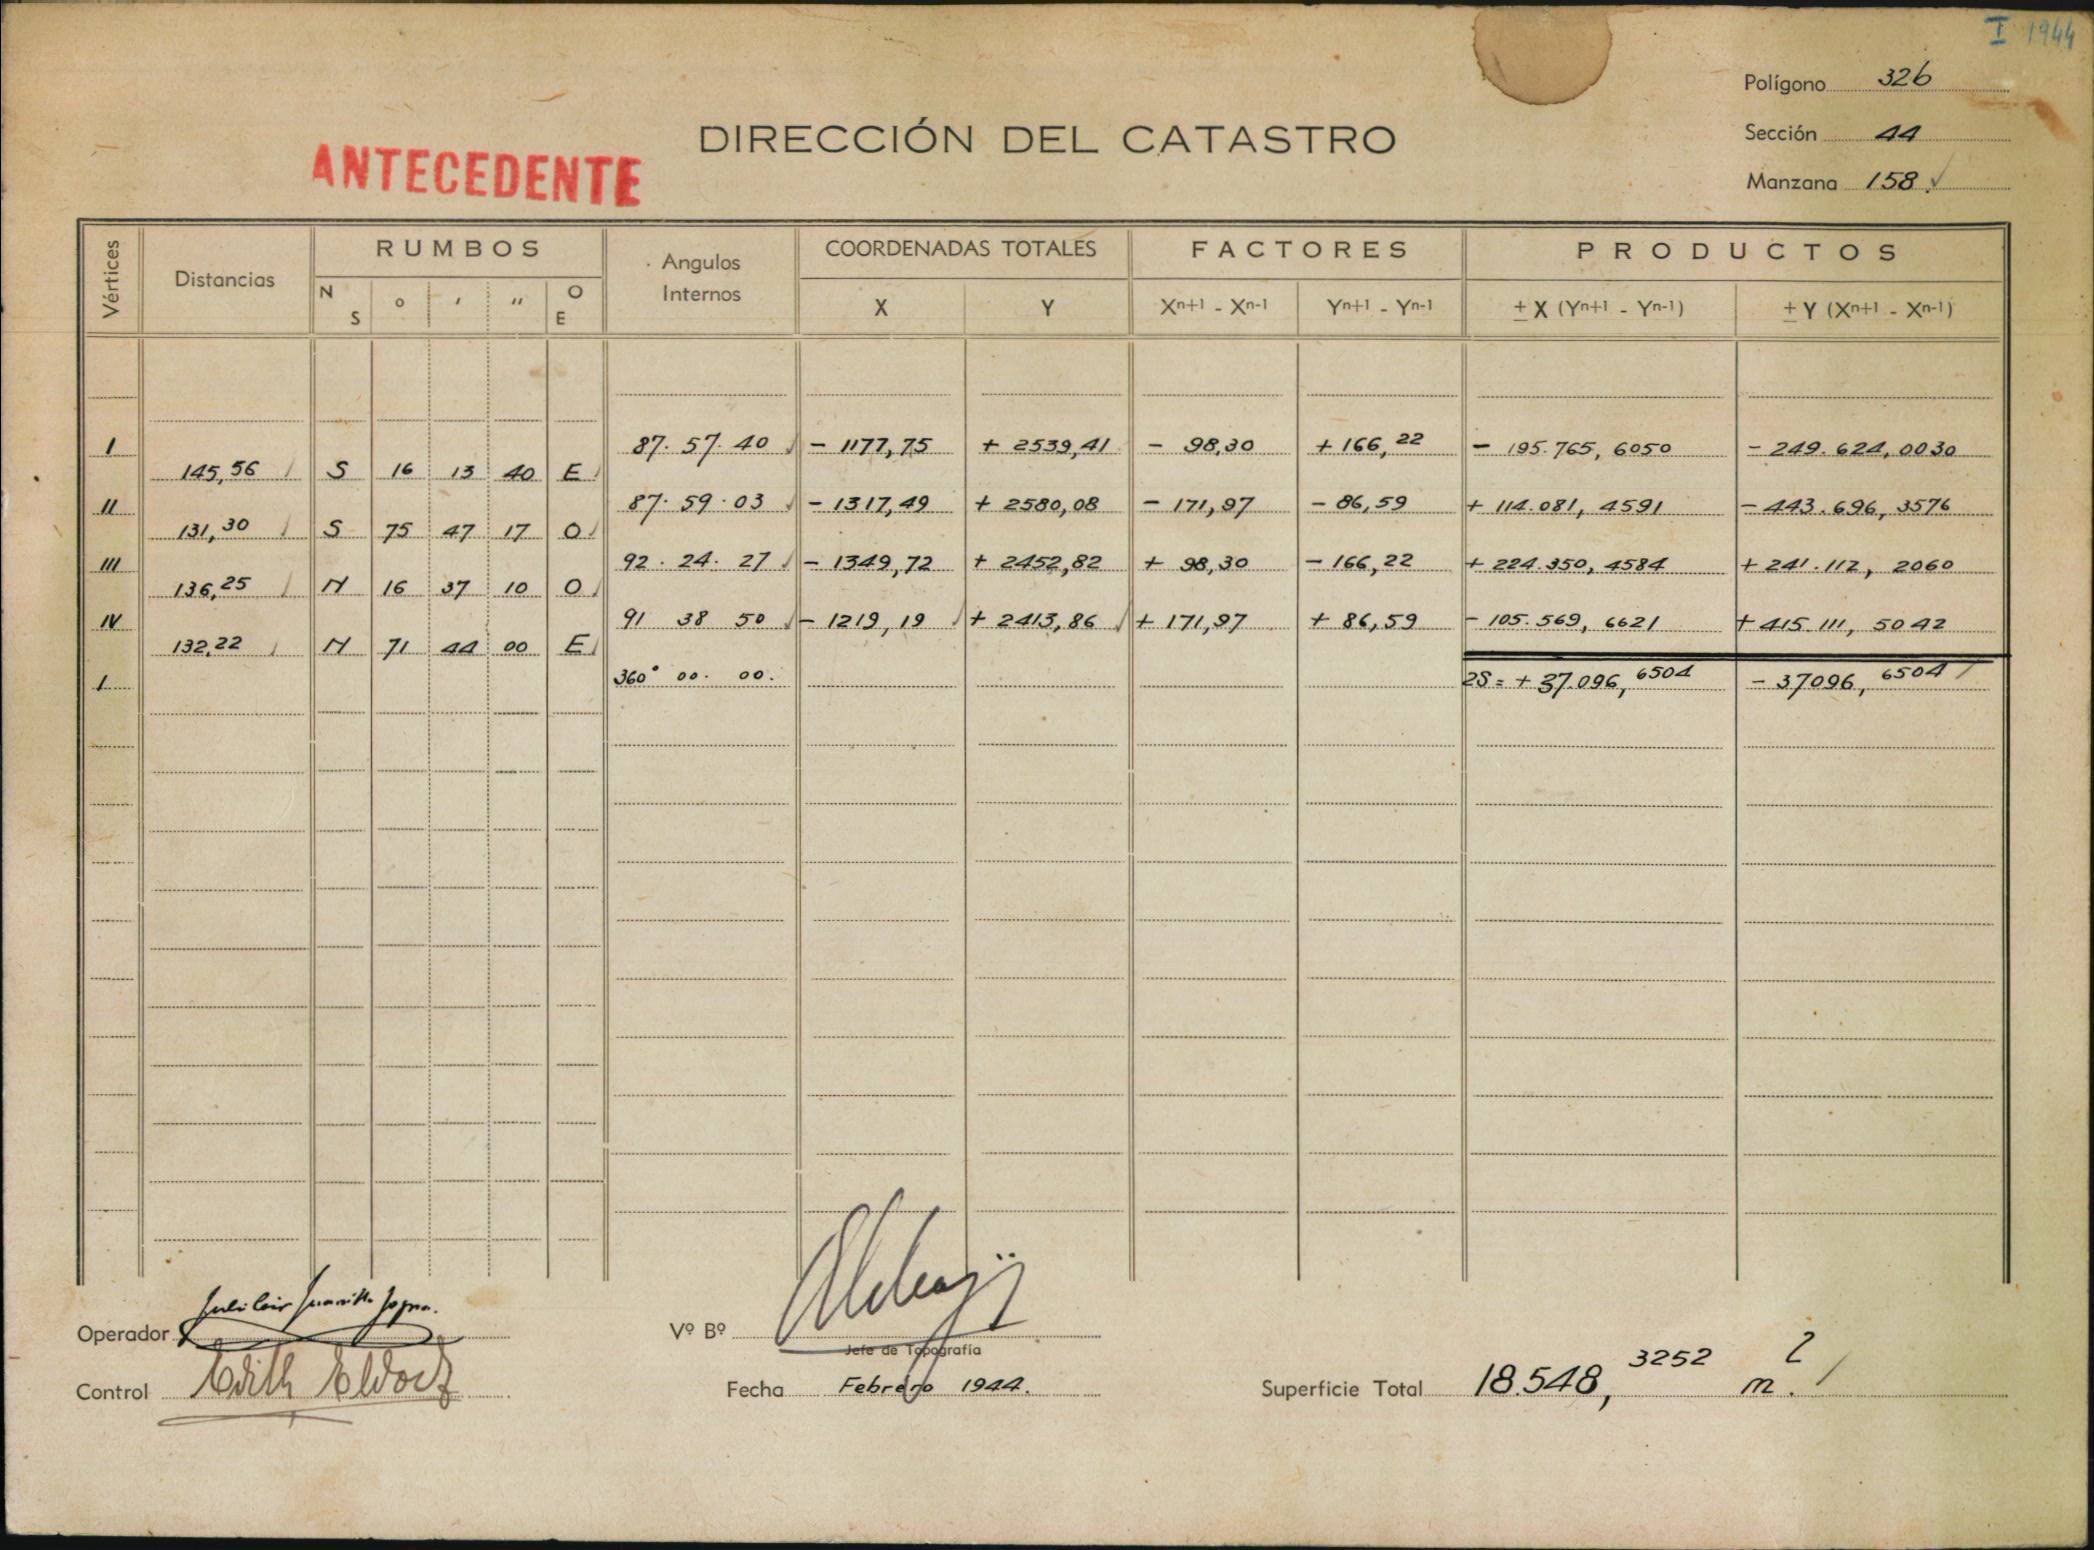 I 1944
Polígono 326
DIRECCIÓN DEL CATASTRO
Sección 44
ANTECEDENTE
Manzana 158
Vértices Distancias RUMBOS Angulos Internos COORDENADAS TOTALES FACTORES PRODUCTOS
N S ° ' " O E X Y Xn+1 - Xn-1 Yn+1 - Yn-1 ± X (Yn+1 - Yn-1) ± Y (Xn+1 - Xn-1)
I 87. 57. 40 - 1177,75 + 2539,41 - 98,30 + 166,22 - 195.765, 6050 - 249.624, 0030
145,56 S 16 13 40 E
II 87. 59. 03 - 1317,49 + 2580,08 - 171,97 - 86,59 + 114.081, 4591 - 443.696, 3576
131,30 S 75 47 17 O
III 92. 24. 27 - 1349,72 + 2452,82 + 98,30 - 166,22 + 224.350, 4584 + 241.112, 2060
136,25 N 16 37 10 O
IV 91 38 50 - 1219,19 + 2413,86 + 171,97 + 86,59 - 105.569, 6621 + 415.111, 5042
132,22 N 71 44 00 E
I 360° 00. 00. 2S = + 37.096, 6504 - 37096, 6504
Operador
Vº Bº
Jefe de Topografía
Control Edith
Fecha Febrero 1944.
Superficie Total 18.548, 3252 m.2